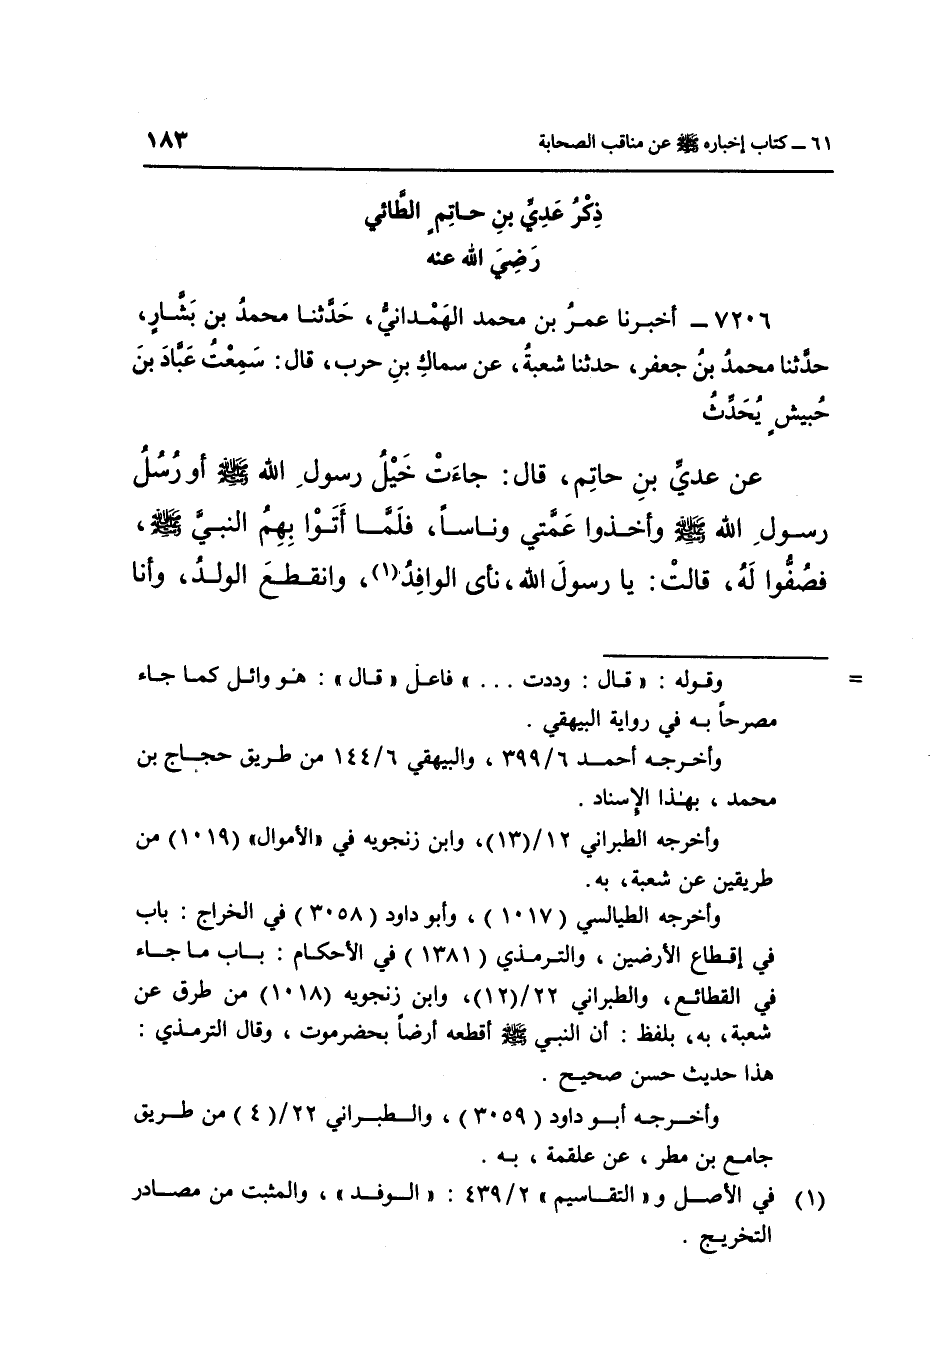 ٦١ ـ كتاب إخباره ﷺ عن مناقب الصحابة ١٨٣
ذِكْرُ عَدِيِّ بنِ حـاتِمٍ الطَّائي
رَضِيَ الله عنه
٧٢٠٦ ـ أخبـرنا عمـرُ بن محمد الهَمْـدانيُّ، حَدَّثنـا محمدُ بن بَشَّـارٍ،
حدَّثنا محمدُ بنُ جعفر، حدثنا شعبةُ، عن سماكِ بنِ حرب، قال: سَمِعْتُ عَبَّادَ بنَ
حُبيشٍ يُحَدِّثُ
عن عديِّ بنِ حاتِم، قال: جاءَتْ خَيْلُ رسولِ الله ﷺ أو رُسُلُ
رسـولِ الله ﷺ وأخـذوا عَمَّتي ونـاسـاً، فلَمَّـا أَتَوْا بِهِمُ النبـيَّ ﷺ،
فصُفُّوا لَهُ، قالتْ: يا رسولَ الله، نأى الوافِدُ(١)، وانقـطـعَ الولـدُ، وأنا
= وقـوله : « قـال : وددت ... » فاعـل « قـال » : هـو وائـل كمـا جـاء
مصرحاً بـه في رواية البيهقي .
وأخـرجـه أحمـد ٣٩٩/٦ ، والبيهقي ١٤٤/٦ من طـريق حجـاج بن
محمد ، بهـذا الإسناد .
وأخرجه الطبراني ١٢/(١٣)، وابن زنجويه في «الأموال» (١٠١٩) من
طريقين عن شعبة، به.
وأخرجه الطيالسي ( ١٠١٧ ) ، وأبو داود ( ٣٠٥٨ ) في الخراج : باب
في إقـطاع الأرضين ، والتـرمـذي ( ١٣٨١ ) في الأحكـام : بــاب مـا جـاء
في القطائـع، والطبراني ٢٢/(١٢)، وابن زنجويه (١٠١٨) من طرق عن
شعبة، به، بلفظ : أن النبـي ﷺ أقطعه أرضاً بحضرموت ، وقال الترمـذي :
هذا حديث حسن صحيـح .
وأخــرجـه أبــو داود ( ٣٠٥٩ ) ، والــطبــراني ٢٢/( ٤ ) من طــريق
جامـع بن مطر ، عن علقمة ، بـه .
(١) في الأصــل و « التقــاسيم » ٤٣٩/٢ : « الــوفـد » ، والمثبت من مصــادر
التخريـج .